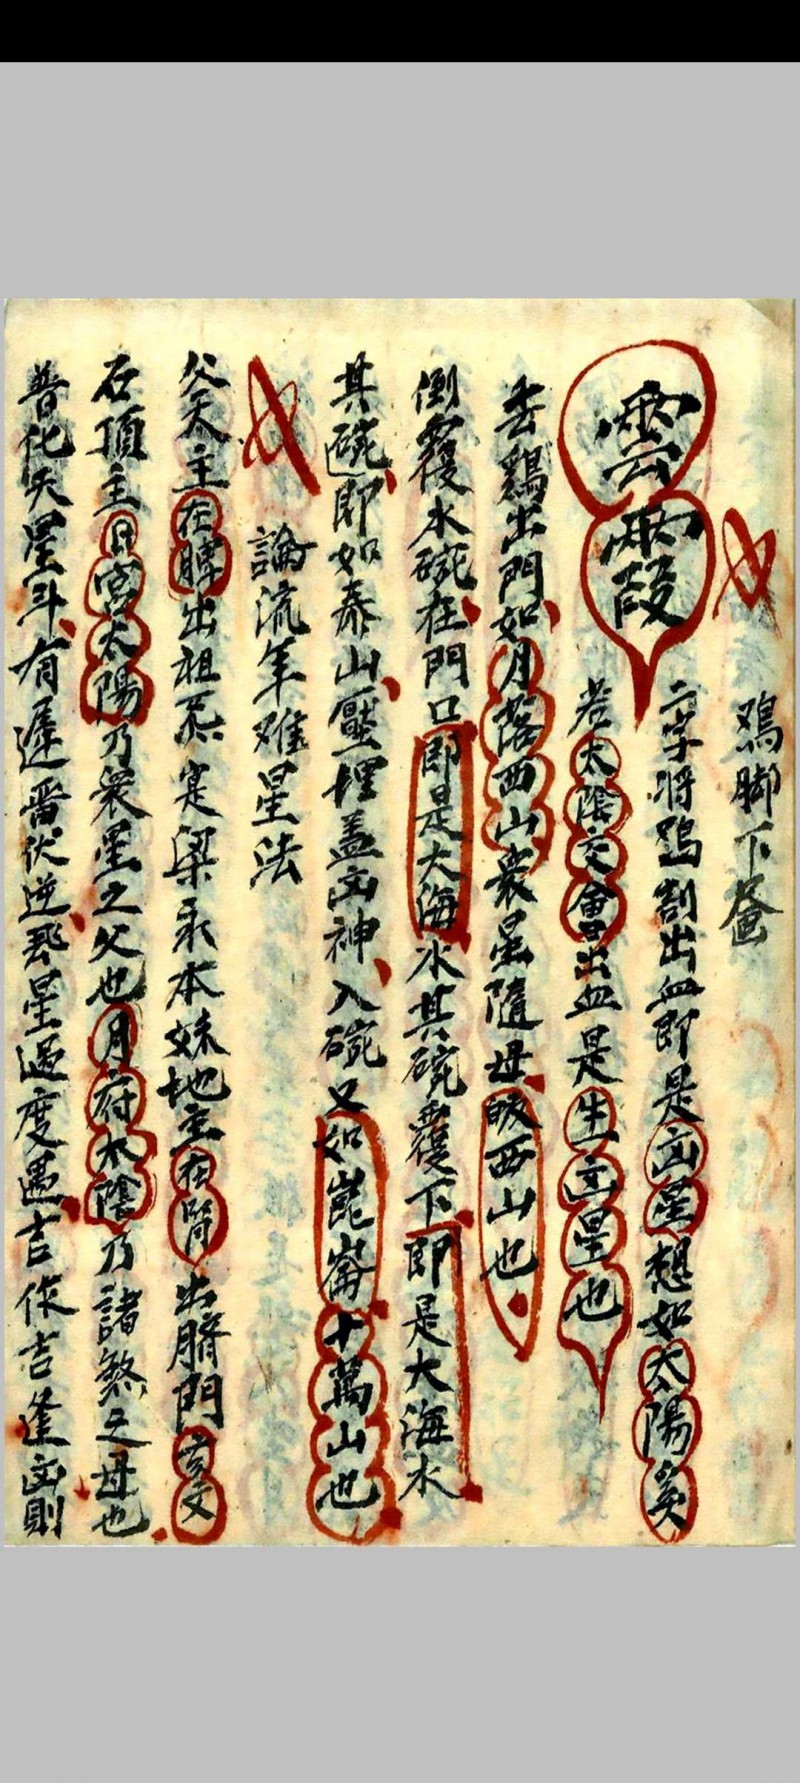 鷄脚下
雲霞
二字將鷄割出血即是凶星想如太陽
若太陰交會出血是生凶星也
丢鷄出門如月落西山衆星隨母皈西山也
倒覆水碗在門口即是大海水其碗覆下即是大海水
其碗即如泰山壓埋盖凶神入碗又如崑崙十萬山也
論流年难星法
父天主在脾出祖炁寔梁永本妹地主在腎出臍門
石頂主日宮太陽乃衆星之父也月府太陰乃諸煞之母也
普化天星斗有遲畱伏逆惡星過度遇吉作吉逢凶則